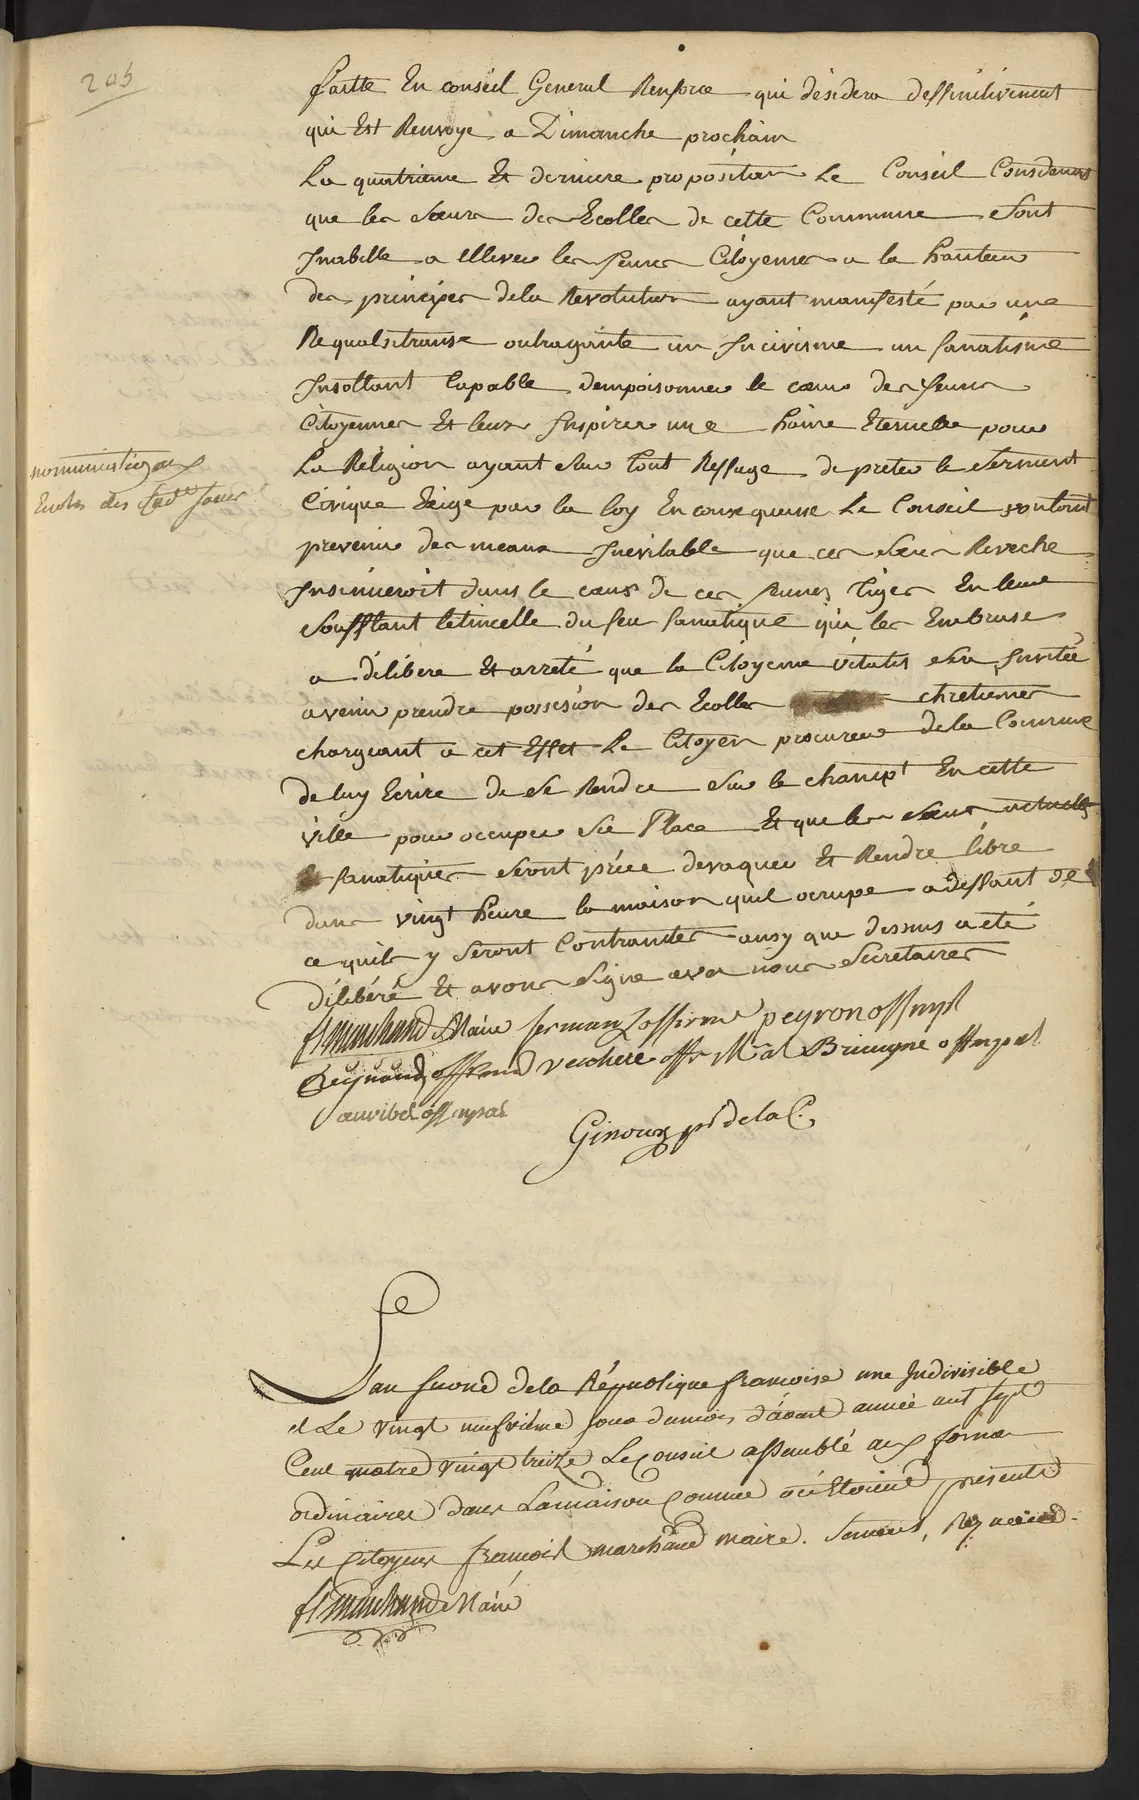 205
faitte En conseil General Renforce qui desidera deffinitivement
qui Est Renvoyé a Dimanche prochain
La quatrieme Et derniere proposition Le Conseil Considerant
que les Sœurs des Ecolles de cette Commune Sont
Inabille a Ellever les Jeunes Citoyennes a la hauteur
des principes dela Revolution ayant manifesté par une
outragante un Incivisme un fanatisme
Insoltant Capable dempoisonner le cœur des Jeunes
Citoyennes Et leur Inspirer une haine Eternelle pour
La Religion ayant Sur tout Reffuge de preter le Serment
Civique Exige par la loy En consequense Le Conseil voulant
prevenir des meaux Inevitable que ces Sœurs Reveche
Insinueroit dans le cœur de ces Jeunes tiges En leur
Soufflant letincelle du feu fanatique qui les Embrase
a délibere Et arreté que la Citoyenne vitalis Sera Invitée
avenir prendre possesion des Ecolles chretiennes
chargeant a cet Effet Le Citoyen procureur dela Commune
de luy Ecrire de Se Rendre Sur le champt En cette
ville pour occuper Sa Place Et que les Sœurs actuelles
fanatiques Seront priée devaquer Et Rendre libre
dans vingt heure la maison quil ocupe adeffaut de
ce quils y Seront Contraintes ausy que dessus a été
délibéré Et avons Signe avec nous Secretaires
nommination aux
Ecoles des
fs marchand Maire offi peyron off mpl
Reynaud off verchere offr Mal Brieugne off mpal
off mpal
Ginoux pr de la C.
Lan Second dela République francoise une Indivisible
et Le vingt neufvième Jour dumois d'aoust année mil sept
Cent quatre vingt treize Le Conseil assemblé aux formes
ordinaires dans Lamaison Commune présents
Les Citoyens françois marchand maire. Reynaud.
fs marchand Maire